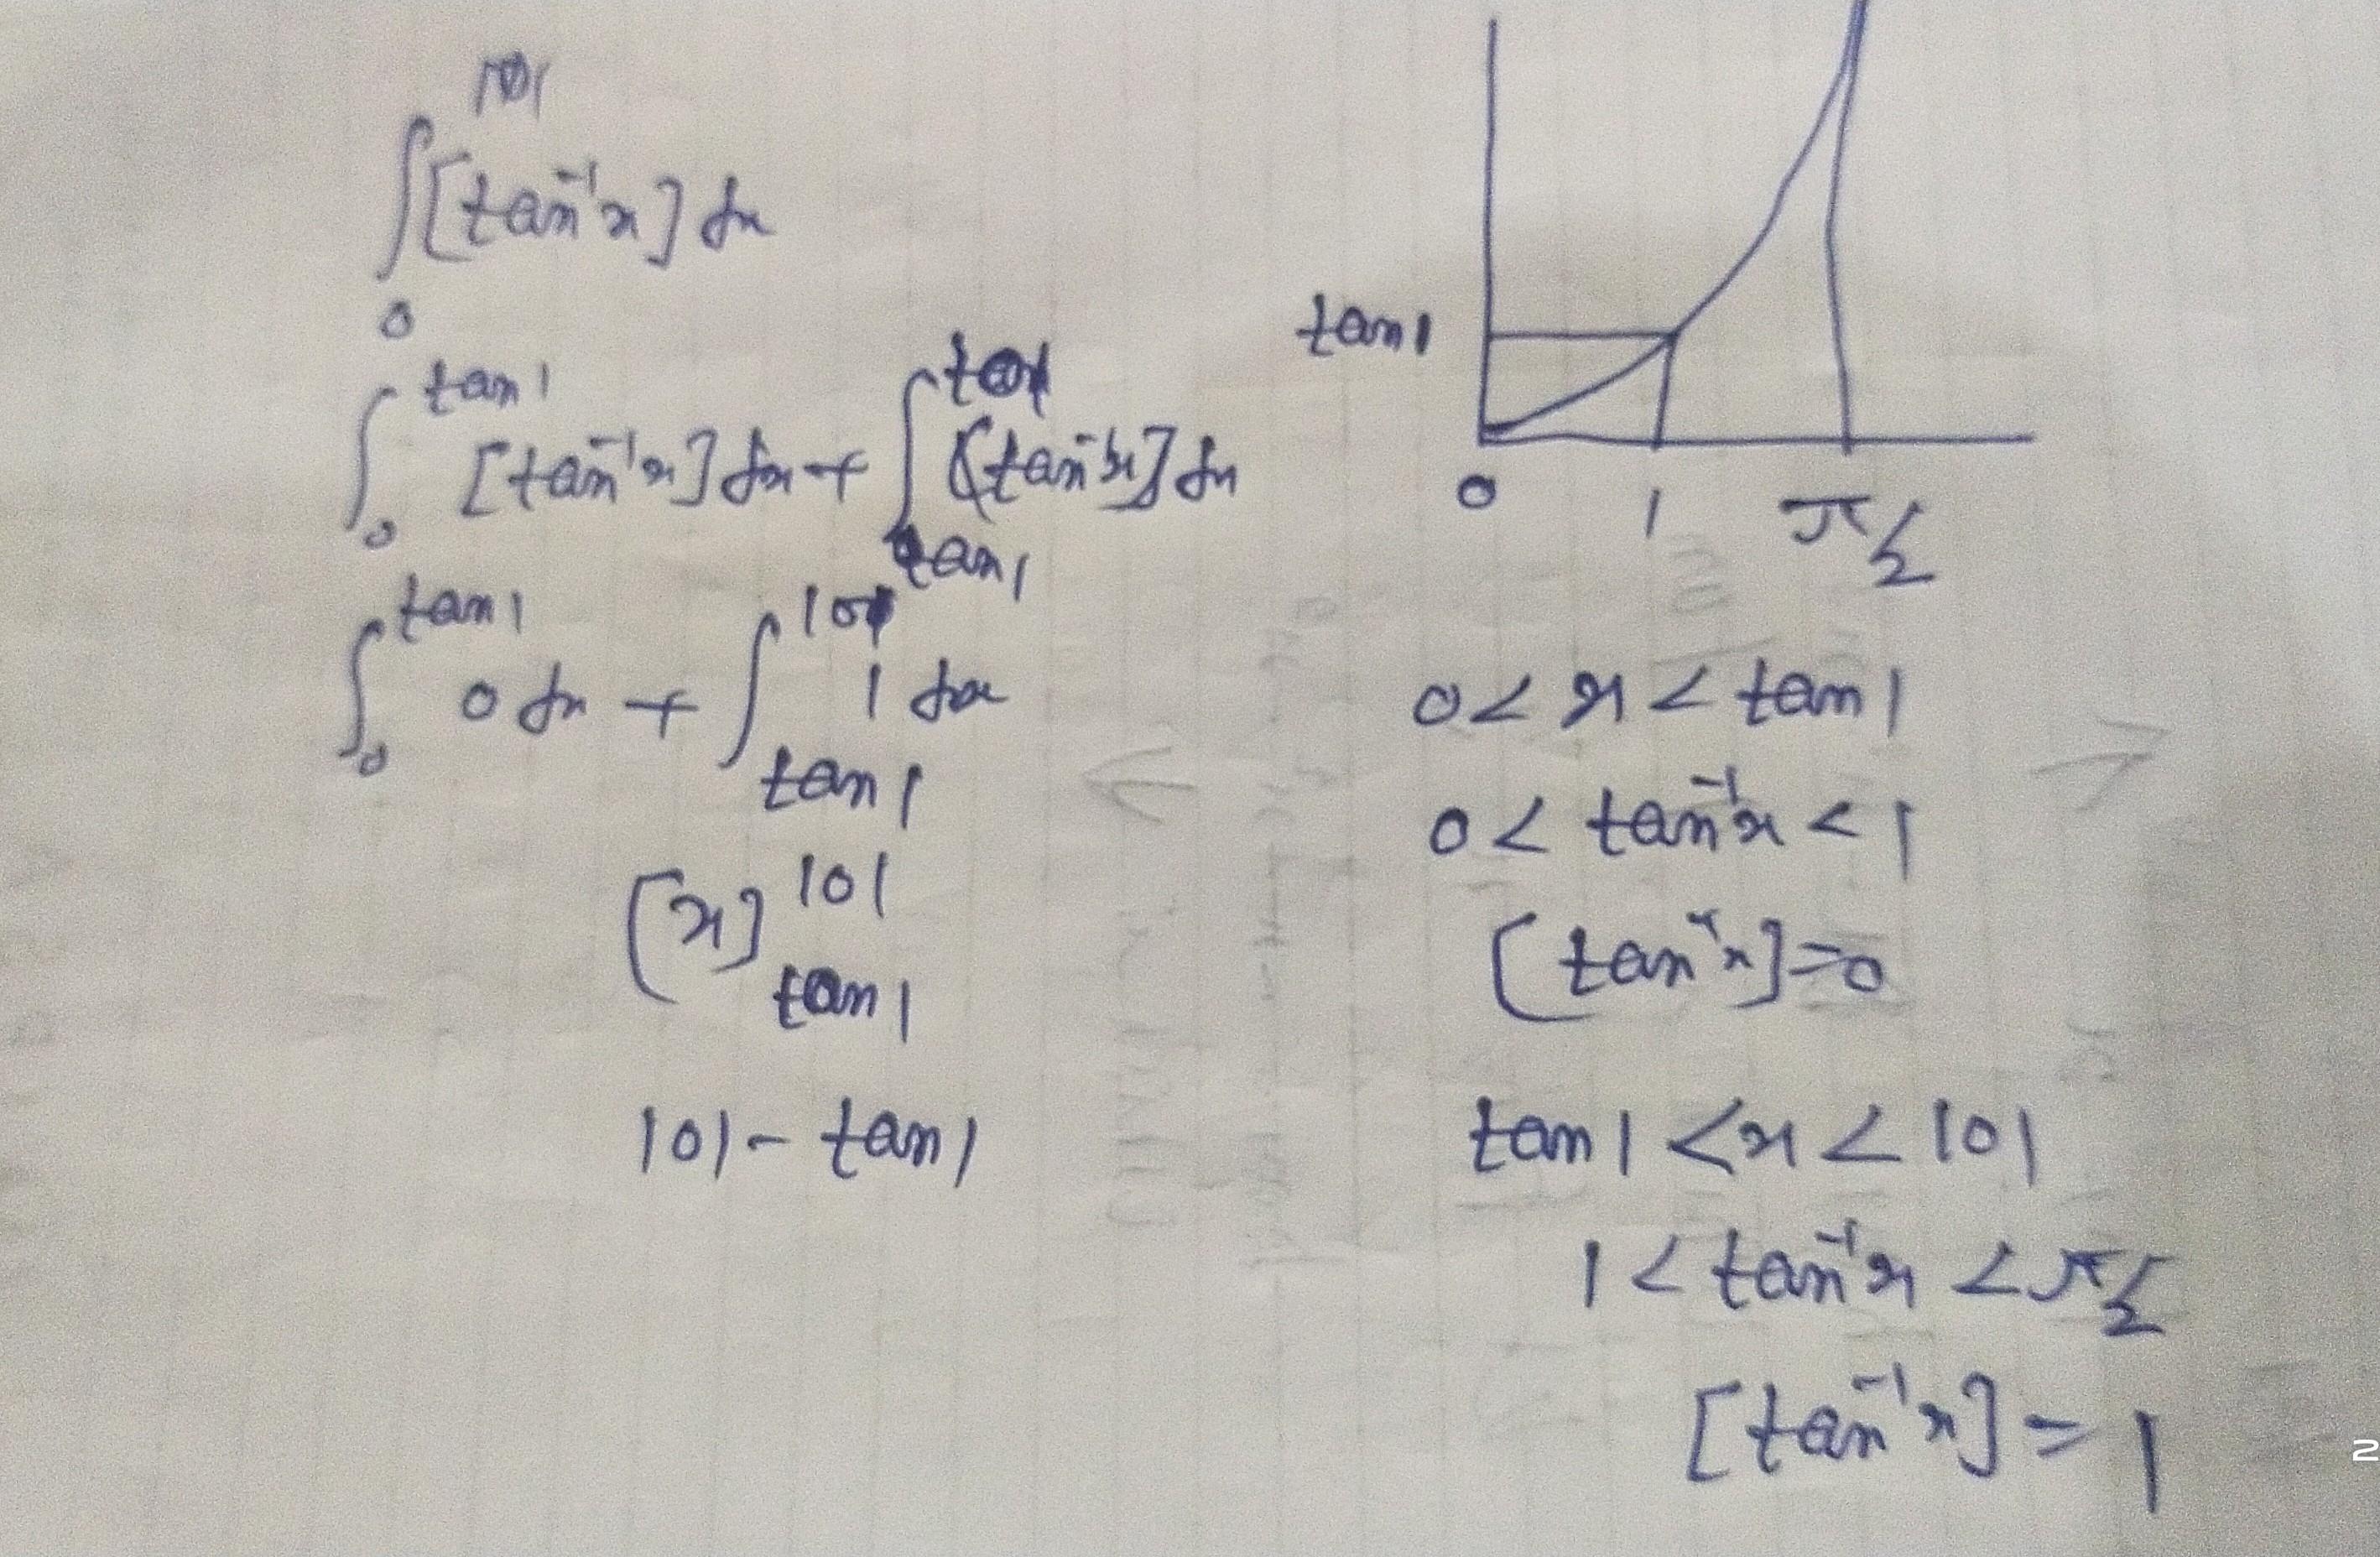 ∫₀¹⁰¹ [tan⁻¹x] dx
∫₀^{tan 1} [tan⁻¹x] dx + ∫_{tan 1}^{101} [tan⁻¹x] dx
∫₀^{tan 1} 0 dx + ∫_{tan 1}^{101} 1 dx
[x]_{tan 1}^{101}
101 - tan 1
tan 1
0 1 π/2
0 < x < tan 1
0 < tan⁻¹x < 1
[tan⁻¹x] = 0
tan 1 < x < 101
1 < tan⁻¹x < π/2
[tan⁻¹x] = 1
2